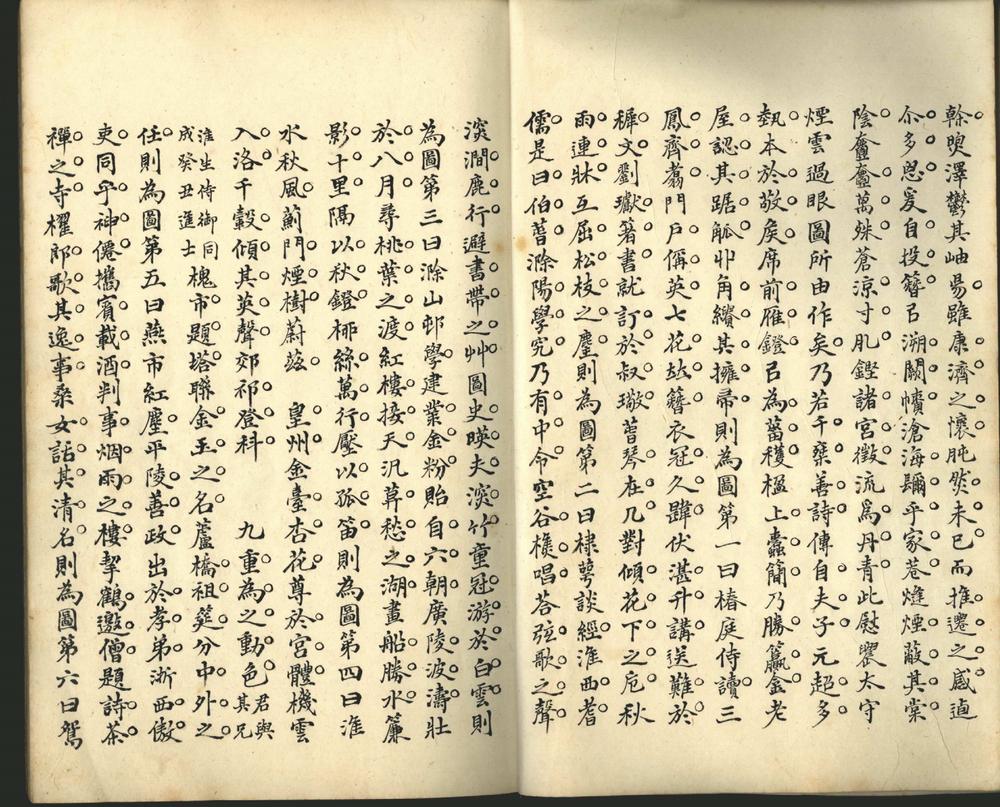 榦煦澤鬱其岫昜雖康濟之懷肫然未已而推遷之感逌
尒多恖爰自投簪㠯溯闢幩滄海闢乎家巷㷼煙蔽其棠
陰𧆑𧆑萬殊蒼涼寸肌鏗諸宮徵流為丹青此慰農太守
煙雲過眼圖所由作矣乃若千乘善詩傳自夫子元超多
埶本於敬矦席前雁鐙㠯為菑穫楹上蠹簡乃勝籯金老
屋認其踞觚丱角纘其擁帚則為圖第一曰椿庭侍讀三
鳳齊翥門戶偁英七花竝簪衣冠久韡伏湛升講送難於
樨文劉瓛箸書就訂於叔璥蒼琴在几對傾花下之卮秋
雨連牀互屈松枝之麈則為圖第二曰棣萼談經淮西耆
儒是曰伯蒼滁陽學究乃有中令空谷樵唱荅弦歌之聲
淡澗鹿行避書帶之艸圖史暎夫淡竹童冠游於白雲則
為圖第三曰滁山邨學建業金粉貽自六朝廣陵波濤壯
於八月尋桃葉之渡紅樓接天汎萆愁之湖畫船勝水簾
影十里隔以秋鐙桺絲萬行壓以孤笛則為圖第四曰淮
水秋風薊門煙樹蔚茲 皇州金臺杏花尊於宮體機雲
入洛千轂傾其英聲郊祁登科 九重為之動色君與其兄
淮生侍御同成癸丑進士槐市題塔聯金玉之名蘆橋祖筵分中外之
任則為圖第五曰燕市紅塵平陵善政出於孝弟浙西傲
吏同乎神僊攜賓載酒判事烟雨之樓挈鶴邀僧題詩茶
禪之寺櫂郎歌其逸事桒女話其清名則為圖第六曰鴛